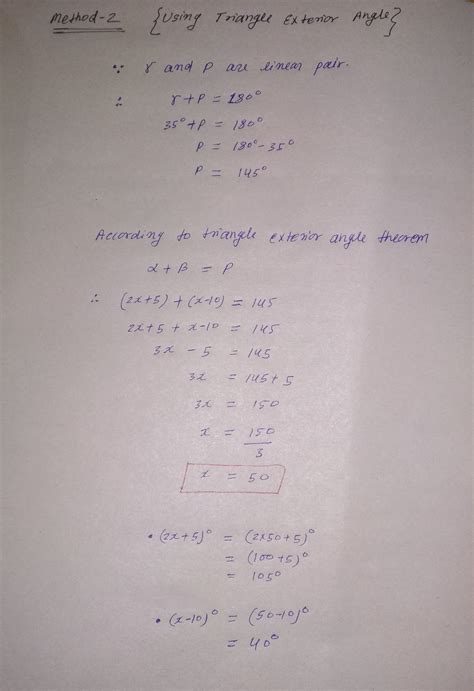 Method-2 {Using Triangle Exterior Angle}
∵ γ and P are linear pair.
∴ γ+P = 180°
35°+P = 180°
P = 180°-35°
P = 145°
According to triangle exterior angle theorem
α + β = P
∴ (2x+5) + (x-10) = 145
2x+5 + x-10 = 145
3x - 5 = 145
3x = 145+5
3x = 150
x = 150
3
x = 50
• (2x+5)° = (2×50+5)°
= (100+5)°
= 105°
• (x-10)° = (50-10)°
= 40°